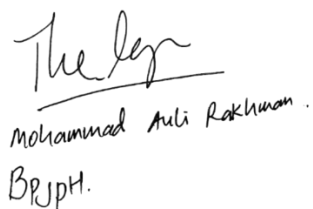 The
Mohammad Auli Rakhman.
BPJPH.